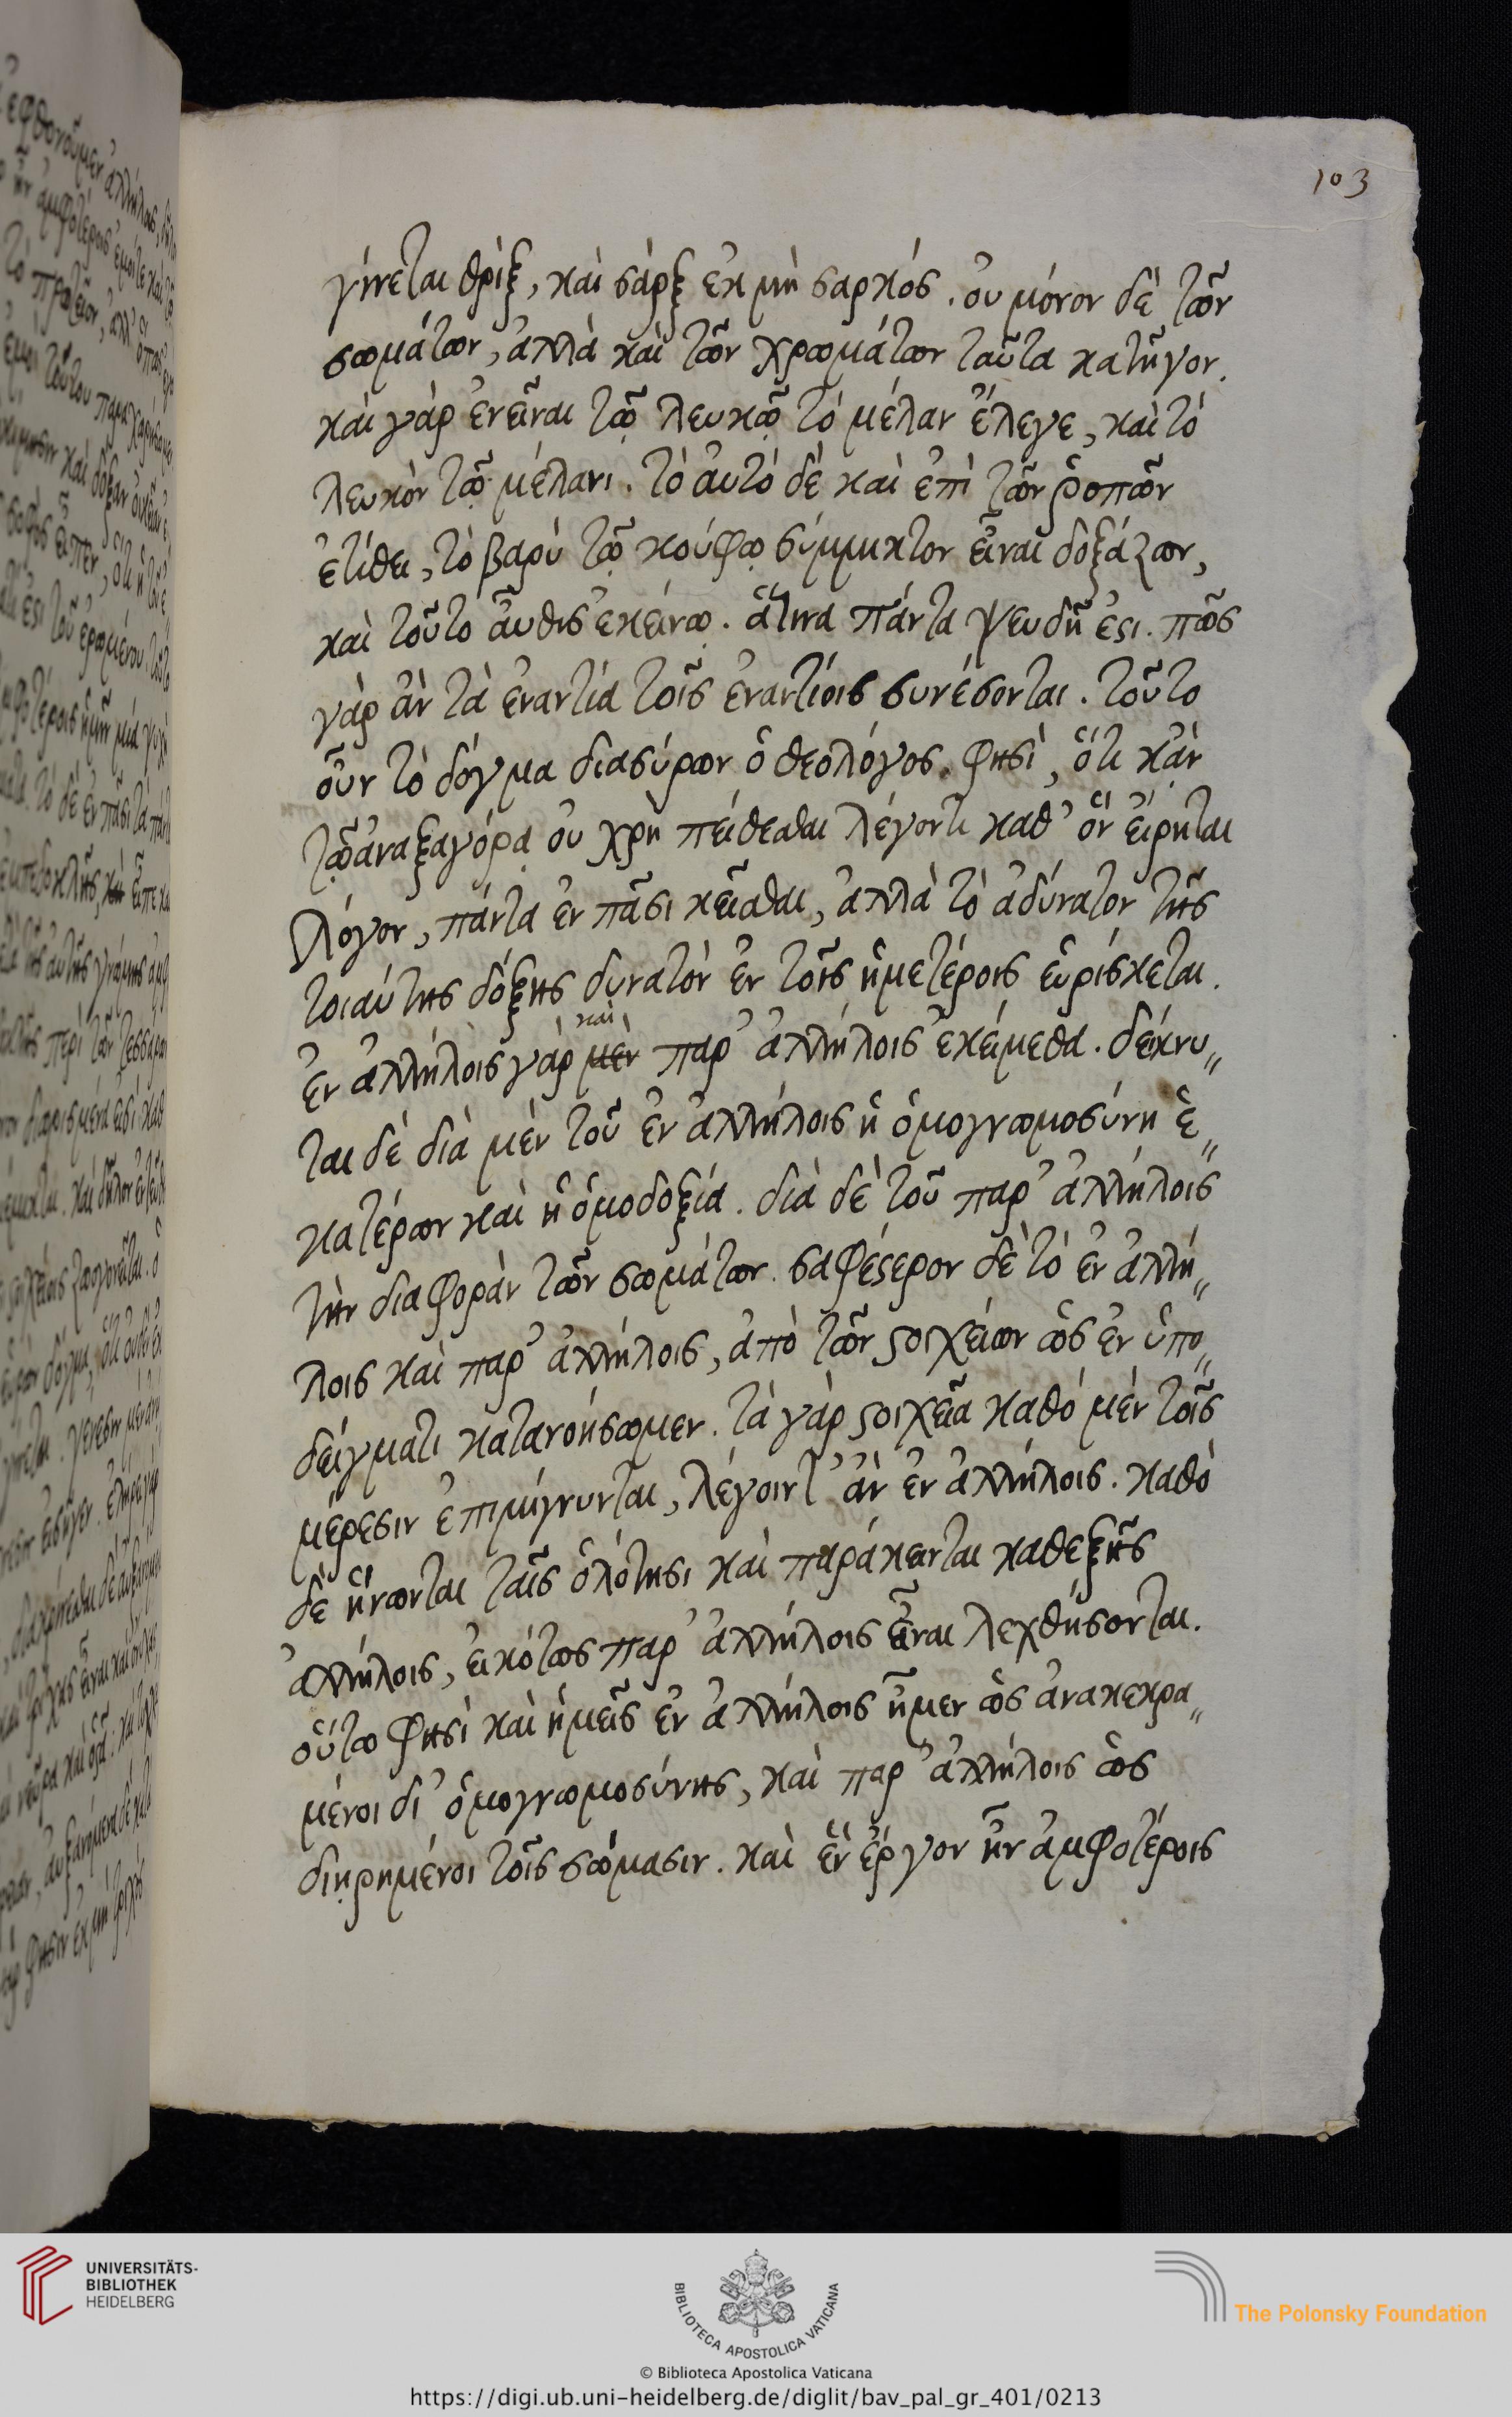 103
γίνεται θρὶξ, καὶ σὰρξ ἐκ μὴ σαρκός. οὐ μόνον δὲ τῶν
σωμάτων, ἀλλὰ καὶ τῶν χρωμάτων ταῦτα κατηγον.
καὶ γὰρ ἐνεῖναι τῷ λευκῷ τὸ μέλαν ἔλεγε, καὶ τὸ
λευκὸν τῷ μέλανι. τὸ αὐτὸ δὲ καὶ ἐπὶ τῶν ῥοπῶν
ἐτίθει, τὸ βαρὺ τῷ κούφῳ σύμμικτον εἶναι δοξάζων,
καὶ τοῦτο αὖθις ἐκείνῳ. ἅτινα πάντα ψευδῆ ἐστι. πῶς
γὰρ ἂν τὰ ἐναντία τοῖς ἐναντίοις συνέσονται. τοῦτο
οὖν τὸ δόγμα διασύρων ὁ θεολόγος, φησὶ, ὅτι κἂν
τῷ ἀναξαγόρᾳ οὐ χρὴ πείθεσθαι λέγοντι καθ' ὃν εἴρηται
λόγον, πάντα ἐν πᾶσι κεῖσθαι, ἀλλὰ τὸ ἀδύνατον τῆς
τοιαύτης δόξης δυνατὸν ἐν τοῖς ἡμετέροις εὑρίσκεται.
ἐν ἀλλήλοις γὰρ μὲν καὶ παρ' ἀλλήλοις ἐκείμεθα. δείκνυ„
ται δὲ διὰ μὲν τοῦ ἐν ἀλλήλοις ἡ ὁμογνωμοσύνη ἑ„
κατέρων καὶ ἡ ὁμοδοξία. διὰ δὲ τοῦ παρ' ἀλλήλοις
τὴν διαφορὰν τῶν σωμάτων. σαφέστερον δὲ τὸ ἐν ἀλλή„
λοις καὶ παρ' ἀλλήλοις, ἀπὸ τῶν στοιχείων ὡς ἐν ὑπο„
δείγματι κατανοήσωμεν. τὰ γὰρ στοιχεῖα καθὸ μὲν τοῖς
μέρεσιν ἐπιμίγνυνται, λέγοιντ' ἂν ἐν ἀλλήλοις. καθὸ
δὲ ἥνωνται ταῖς ὁλότησι καὶ παράκεινται καθεξῆς
ἀλλήλοις, εἰκότως παρ' ἀλλήλοις εἶναι λεχθήσονται.
οὕτω φησὶ καὶ ἡμεῖς ἐν ἀλλήλοις ἦμεν ὡς ἀνακεκρα„
μένοι δι' ὁμογνωμοσύνης, καὶ παρ' ἀλλήλοις ὡς
διῃρημένοι τοῖς σώμασιν. καὶ ἓν ἔργον ἦν ἀμφοτέροις
UNIVERSITÄTS-
BIBLIOTHEK
HEIDELBERG
BIBLIOTECA APOSTOLICA VATICANA
© Biblioteca Apostolica Vaticana
The Polonsky Foundation
https://digi.ub.uni-heidelberg.de/diglit/bav_pal_gr_401/0213